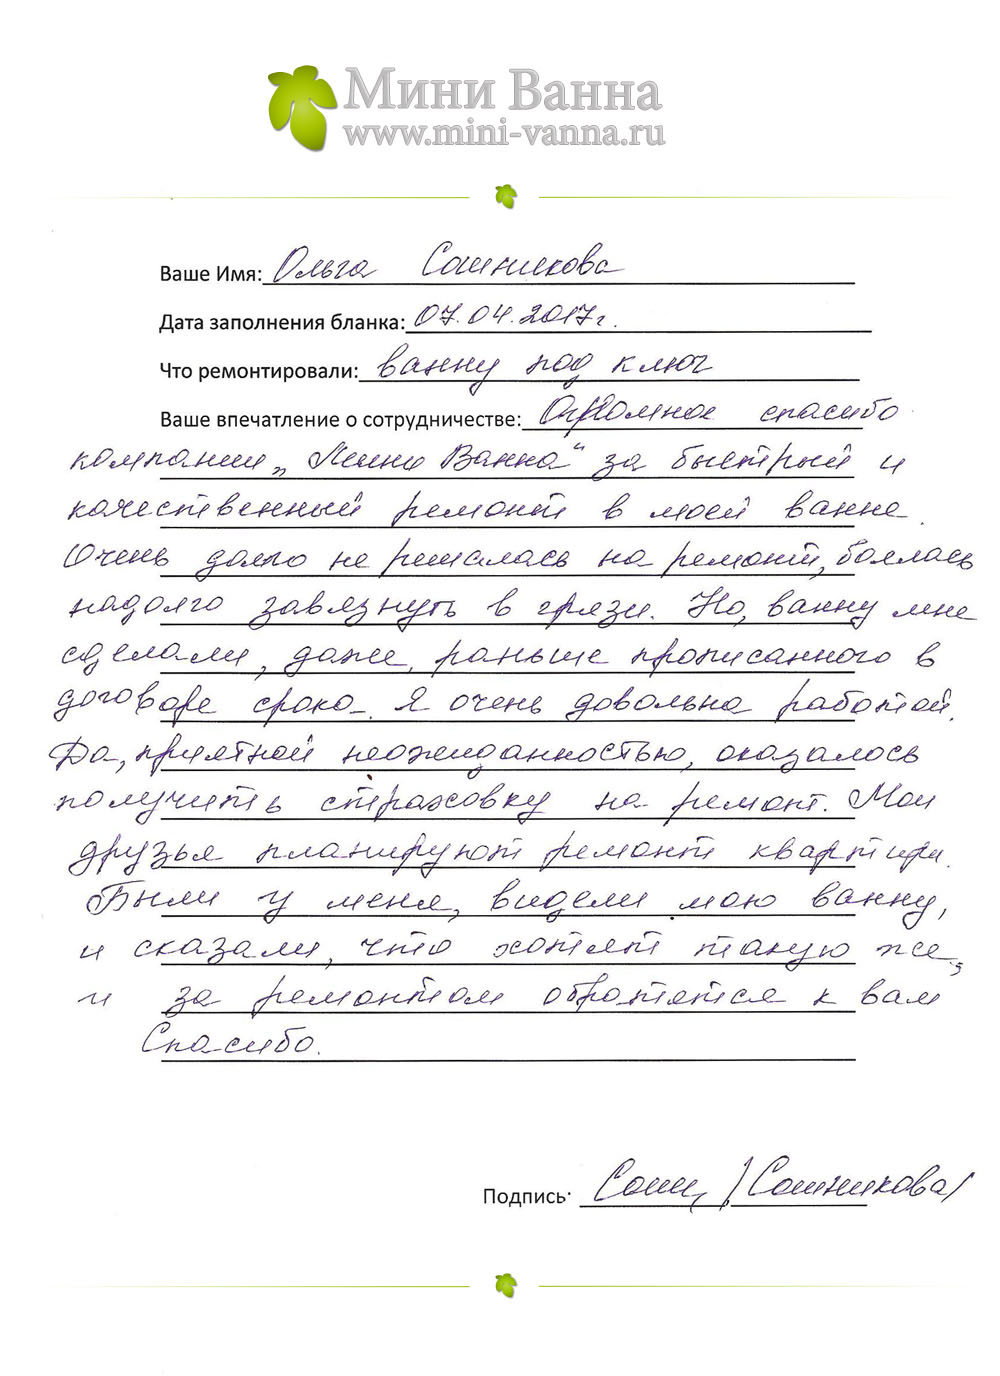 Мини Ванна
www.mini-vanna.ru
Ваше Имя: Ольга Сошникова
Дата заполнения бланка: 07.04.2017г.
Что ремонтировали: ванну под ключ
Ваше впечатление о сотрудничестве: Огромное спасибо
компании „Мини Ванна“ за быстрый и
качественный ремонт в моей ванне.
Очень долго не решалась на ремонт, боялась
надолго завязнуть в грязи. Но, ванну мне
сделали, даже, раньше прописанного в
договоре срока. Я очень довольна работой.
Да, приятной неожиданностью, оказалось
получить страховку на ремонт. Мои
друзья планируют ремонт квартиры.
Были у меня, видели мою ванну,
и сказали, что хотят такую же,
и за ремонтом обратятся к вам
Спасибо.
Подпись: Сошн /Сошникова/